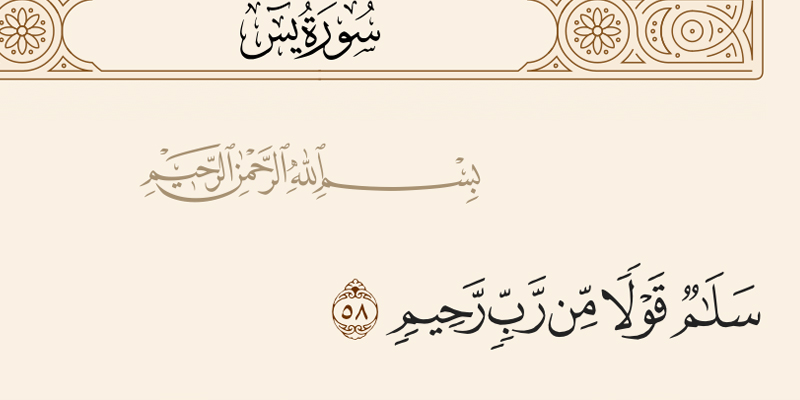 سُورَةُ يسٓ
بِسْمِ ٱللَّهِ ٱلرَّحْمَٰنِ ٱلرَّحِيمِ
سَلَٰمٌ قَوْلًا مِّن رَّبٍّ رَّحِيمٍ ٥٨